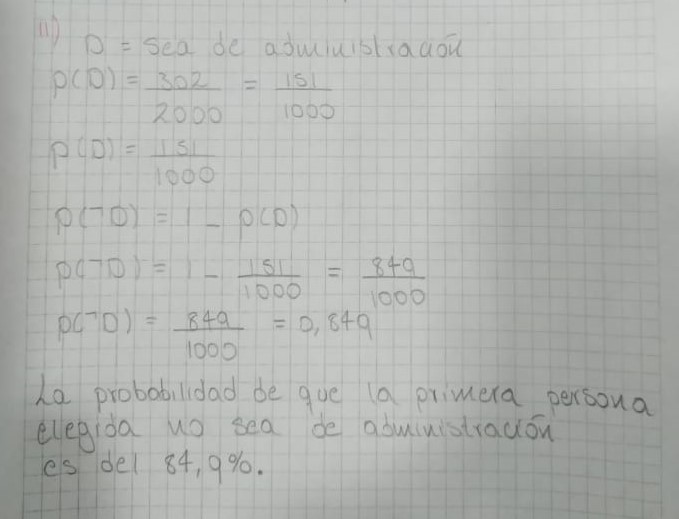 11)
D = sea de administración
P(D) = 302/2000 = 151/1000
P(D) = 151/1000
P(¬D) = 1 - P(D)
P(¬D) = 1 - 151/1000 = 849/1000
P(¬D) = 849/1000 = 0,849
La probabilidad de que la primera persona
elegida no sea de administración
es del 84,9%.